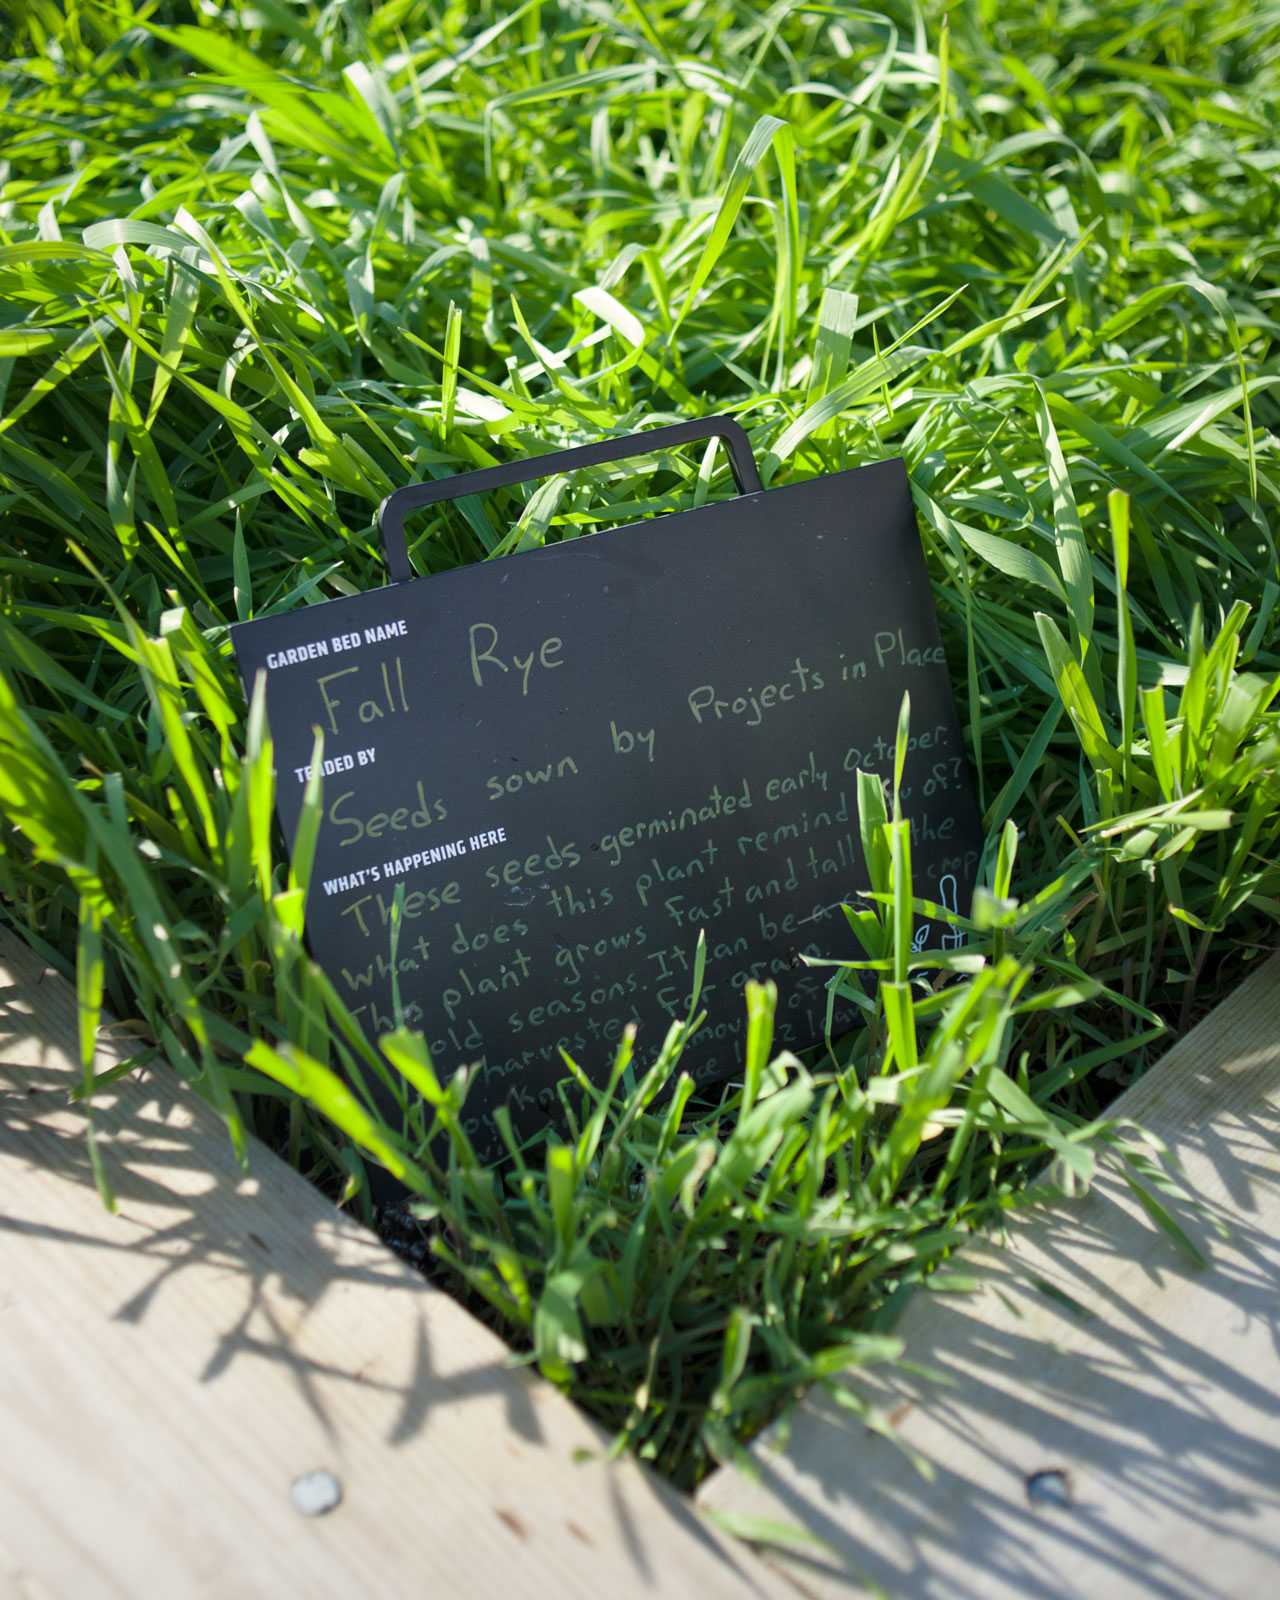 GARDEN BED NAME
Fall Rye
TENDED BY
Seeds sown by Projects in Place
WHAT'S HAPPENING HERE
These seeds germinated early October.
What does this plant remind you of?
This plant grows fast and tall the
old seasons. It can be a crop
harvested for grain.
you know this amount of